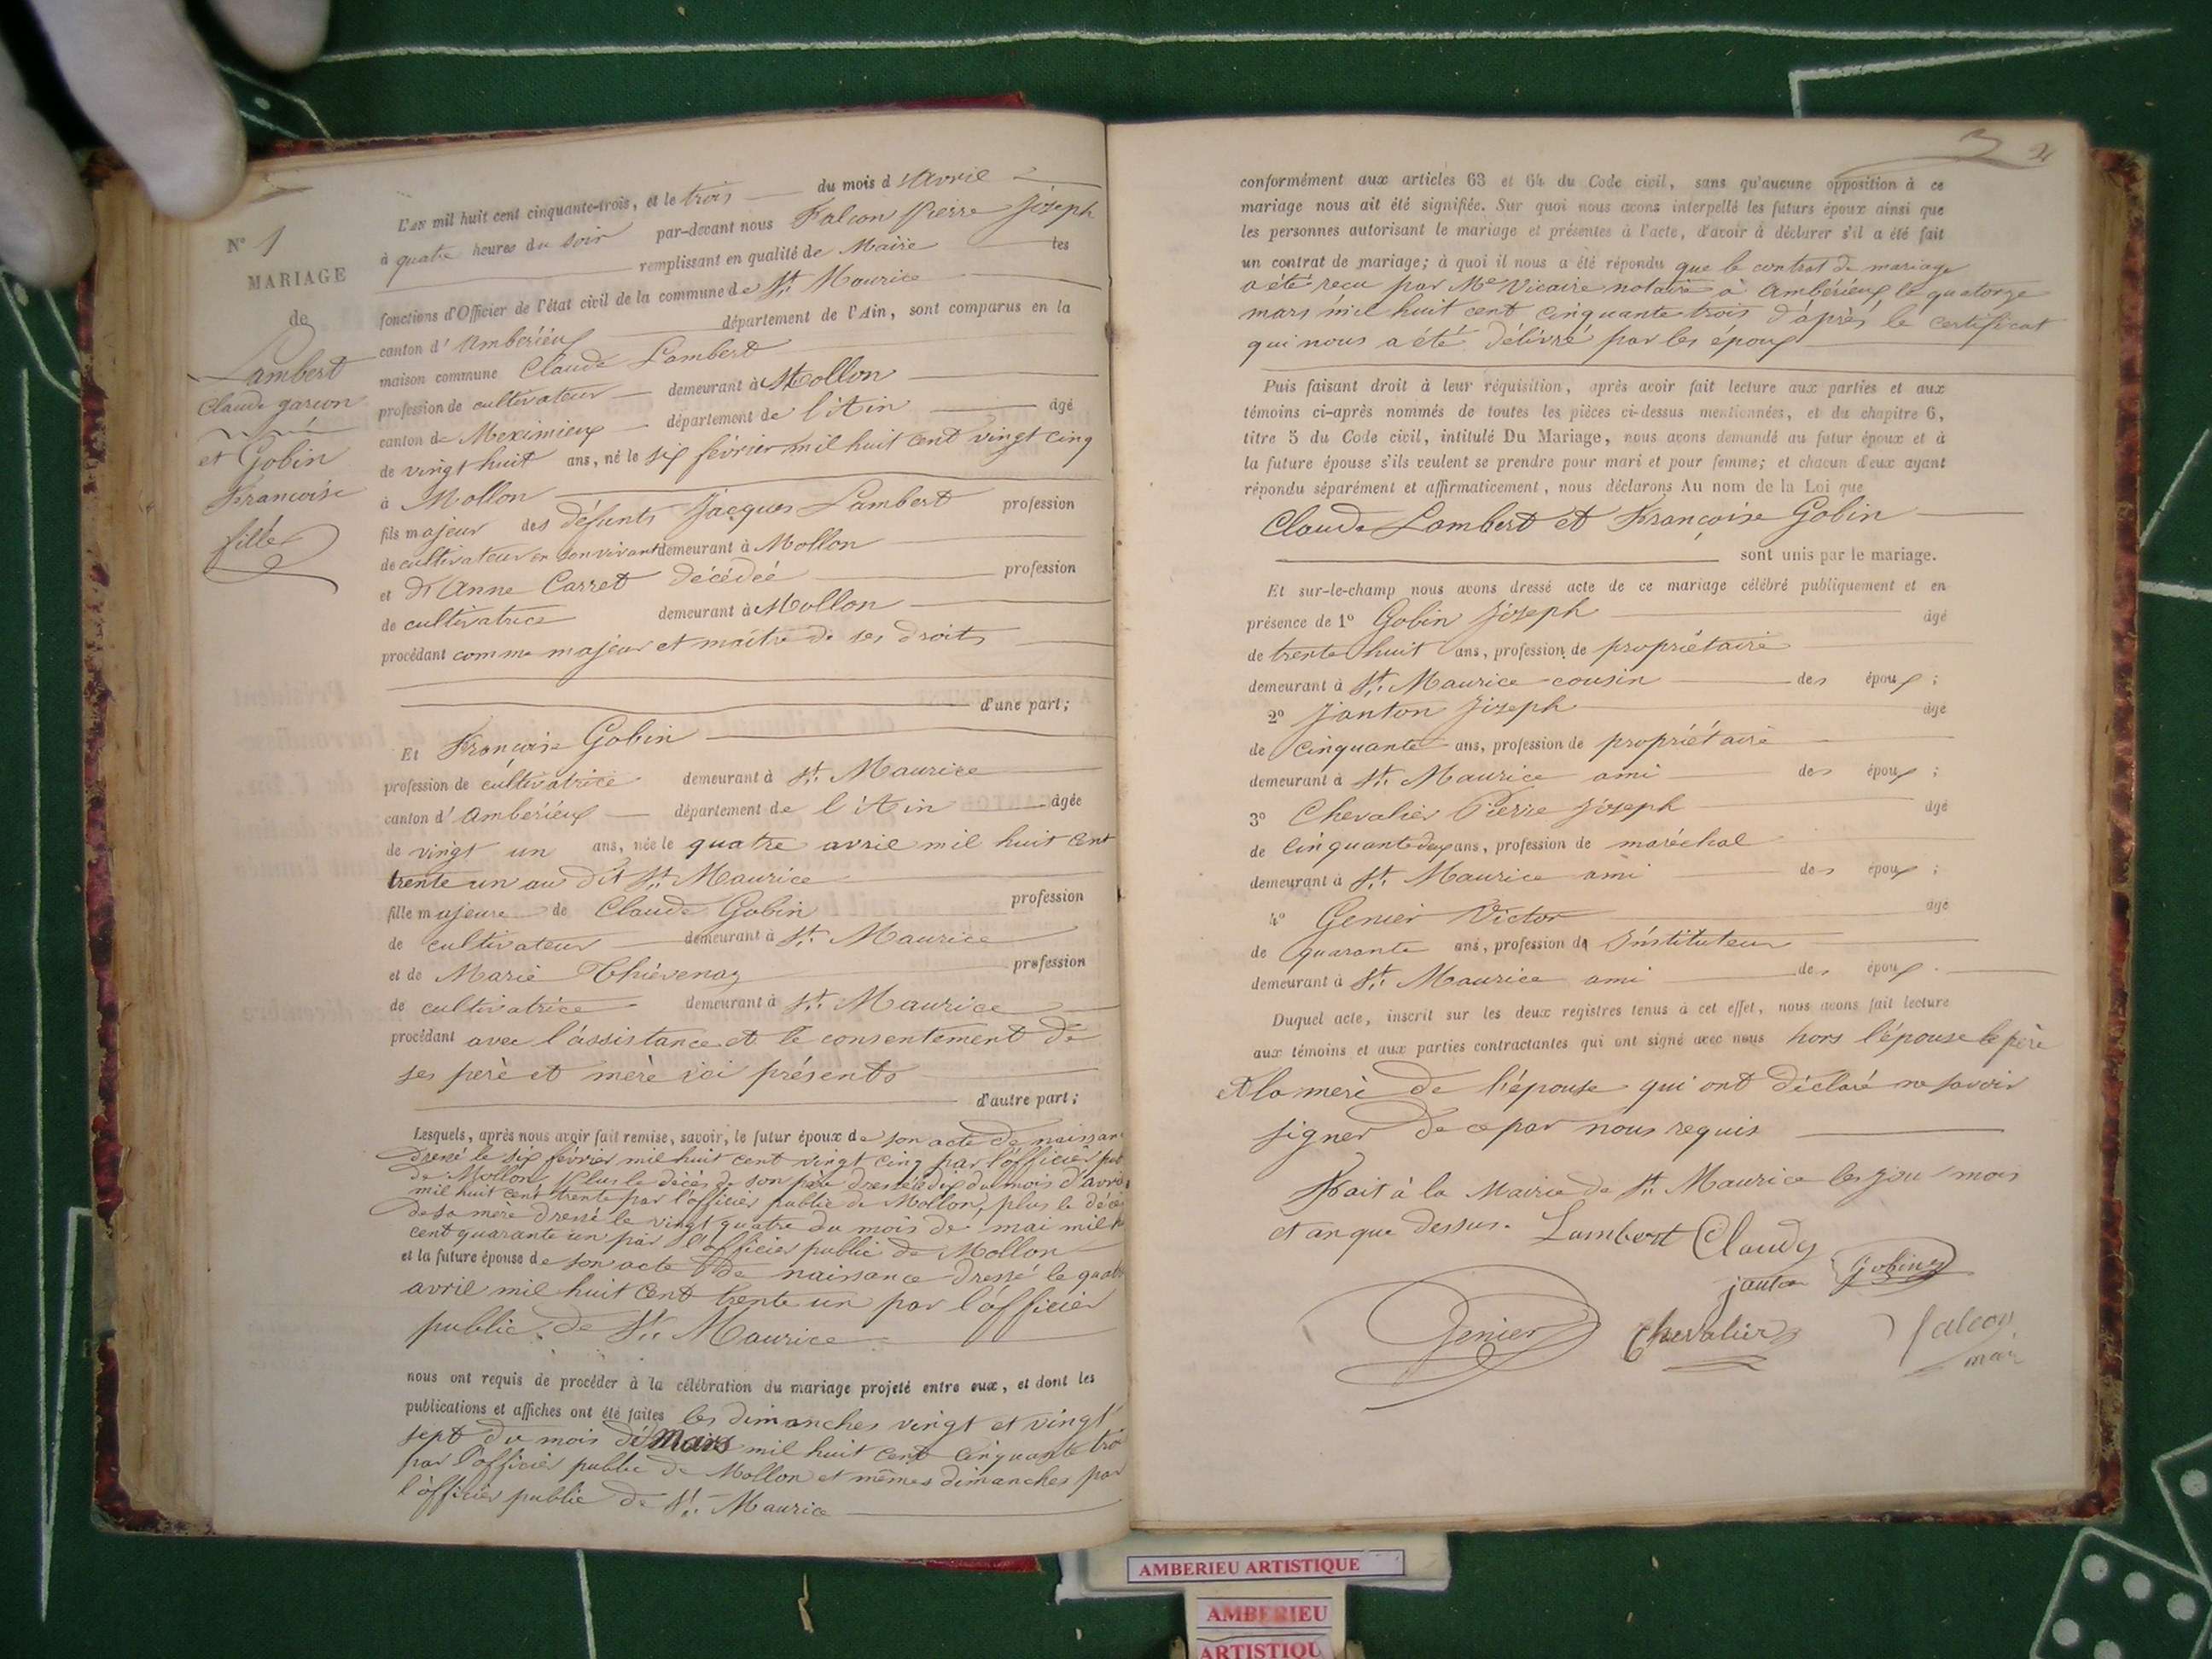 N° 1
MARIAGE
de
Lambert
Claude garçon
et Gobin
Françoise
fille
L'an mil huit cent cinquante-trois, et le trois du mois d'Avril
à quatre heures du soir par-devant nous Falcon Pierre Joseph
remplissant en qualité de Maire les
fonctions d'Officier de l'état civil de la commune de St. Maurice
canton d'Ambérieux département de l'Ain, sont comparus en la
maison commune Claude Lambert
profession de cultivateur demeurant à Mollon
canton de Meximieux département de l'Ain âgé
de vingt huit ans, né le six février mil huit cent vingt cinq
à Mollon
fils majeur des défunts Jacques Lambert profession
de cultivateur en son vivant demeurant à Mollon
et d'Anne Carret décédée profession
de cultivatrice demeurant à Mollon
procédant comme majeur et maître de ses droits
d'une part;
Et Françoise Gobin
profession de cultivatrice demeurant à St. Maurice
canton d'Ambérieux département de l'Ain âgée
de vingt un ans, née le quatre avril mil huit cent
trente un au dit St. Maurice
fille majeure de Claude Gobin profession
de cultivateur demeurant à St. Maurice
et de Marie Thévenaz profession
de cultivatrice demeurant à St. Maurice
procédant avec l'assistance et le consentement de
ses père et mère ici présents
d'autre part;
Lesquels, après nous avoir fait remise, savoir, le futur époux de son acte de naissan
dressé le six février mil huit cent vingt cinq par l'officier pub
de Mollon, Plus le décès de son père dressé à dix du mois d'avril
mil huit cent trente par l'officier public de Mollon, plus le décè
de sa mère dressé le vingt quatre du mois de mai mil h
cent quarante un par l'officier public de Mollon
et la future épouse de son acte de naissance dressé le quatr
avril mil huit cent trente un par l'officier
public de St. Maurice
nous ont requis de procéder à la célébration du mariage projeté entre eux, et dont les
publications et affiches ont été faites les dimanches vingt et vingt
sept du mois de Mars mil huit cent cinquante troi
par l'officier public de Mollon et mêmes dimanches par
l'officier public de St. Maurice
2
conformément aux articles 63 et 64 du Code civil, sans qu'aucune opposition à ce
mariage nous ait été signifiée. Sur quoi nous avons interpellé les futurs époux ainsi que
les personnes autorisant le mariage et présentes à l'acte, d'avoir à déclarer s'il a été fait
un contrat de mariage; à quoi il nous a été répondu que le contrat de mariage
a été reçu par Me Vicaire notaire à Ambérieux, le quatorze
mars mil huit cent cinquante trois d'après le certificat
qui nous a été délivré par les époux
Puis faisant droit à leur réquisition, après avoir fait lecture aux parties et aux
témoins ci-après nommés de toutes les pièces ci-dessus mentionnées, et du chapitre 6,
titre 5 du Code civil, intitulé Du Mariage, nous avons demandé au futur époux et à
la future épouse s'ils veulent se prendre pour mari et pour femme; et chacun d'eux ayant
répondu séparément et affirmativement, nous déclarons Au nom de la Loi que
Claude Lambert et Françoise Gobin
sont unis par le mariage.
Et sur-le-champ nous avons dressé acte de ce mariage célébré publiquement et en
présence de 1° Gobin Joseph âgé
de trente huit ans, profession de propriétaire
demeurant à St. Maurice cousin des époux;
2° Janton Joseph âgé
de cinquante ans, profession de propriétaire
demeurant à St. Maurice ami des époux;
3° Chevalier Pierre Joseph âgé
de Cinquante deux ans, profession de maréchal
demeurant à St. Maurice ami des époux;
4° Genier Victor âgé
de quarante ans, profession de Instituteur
demeurant à St. Maurice ami des époux.
Duquel acte, inscrit sur les deux registres tenus à cet effet, nous avons fait lecture
aux témoins et aux parties contractantes qui ont signé avec nous hors l'épouse le père
et la mère de l'épouse qui ont déclaré ne savoir
signer de ce par nous requis
Fait à la Mairie de St. Maurice les jour mois
et an que dessus. Lambert Claude
janton Gobin
Genier Chevalier falcon
mair
AMBERIEU ARTISTIQUE
AMBERIEU
ARTISTIQU